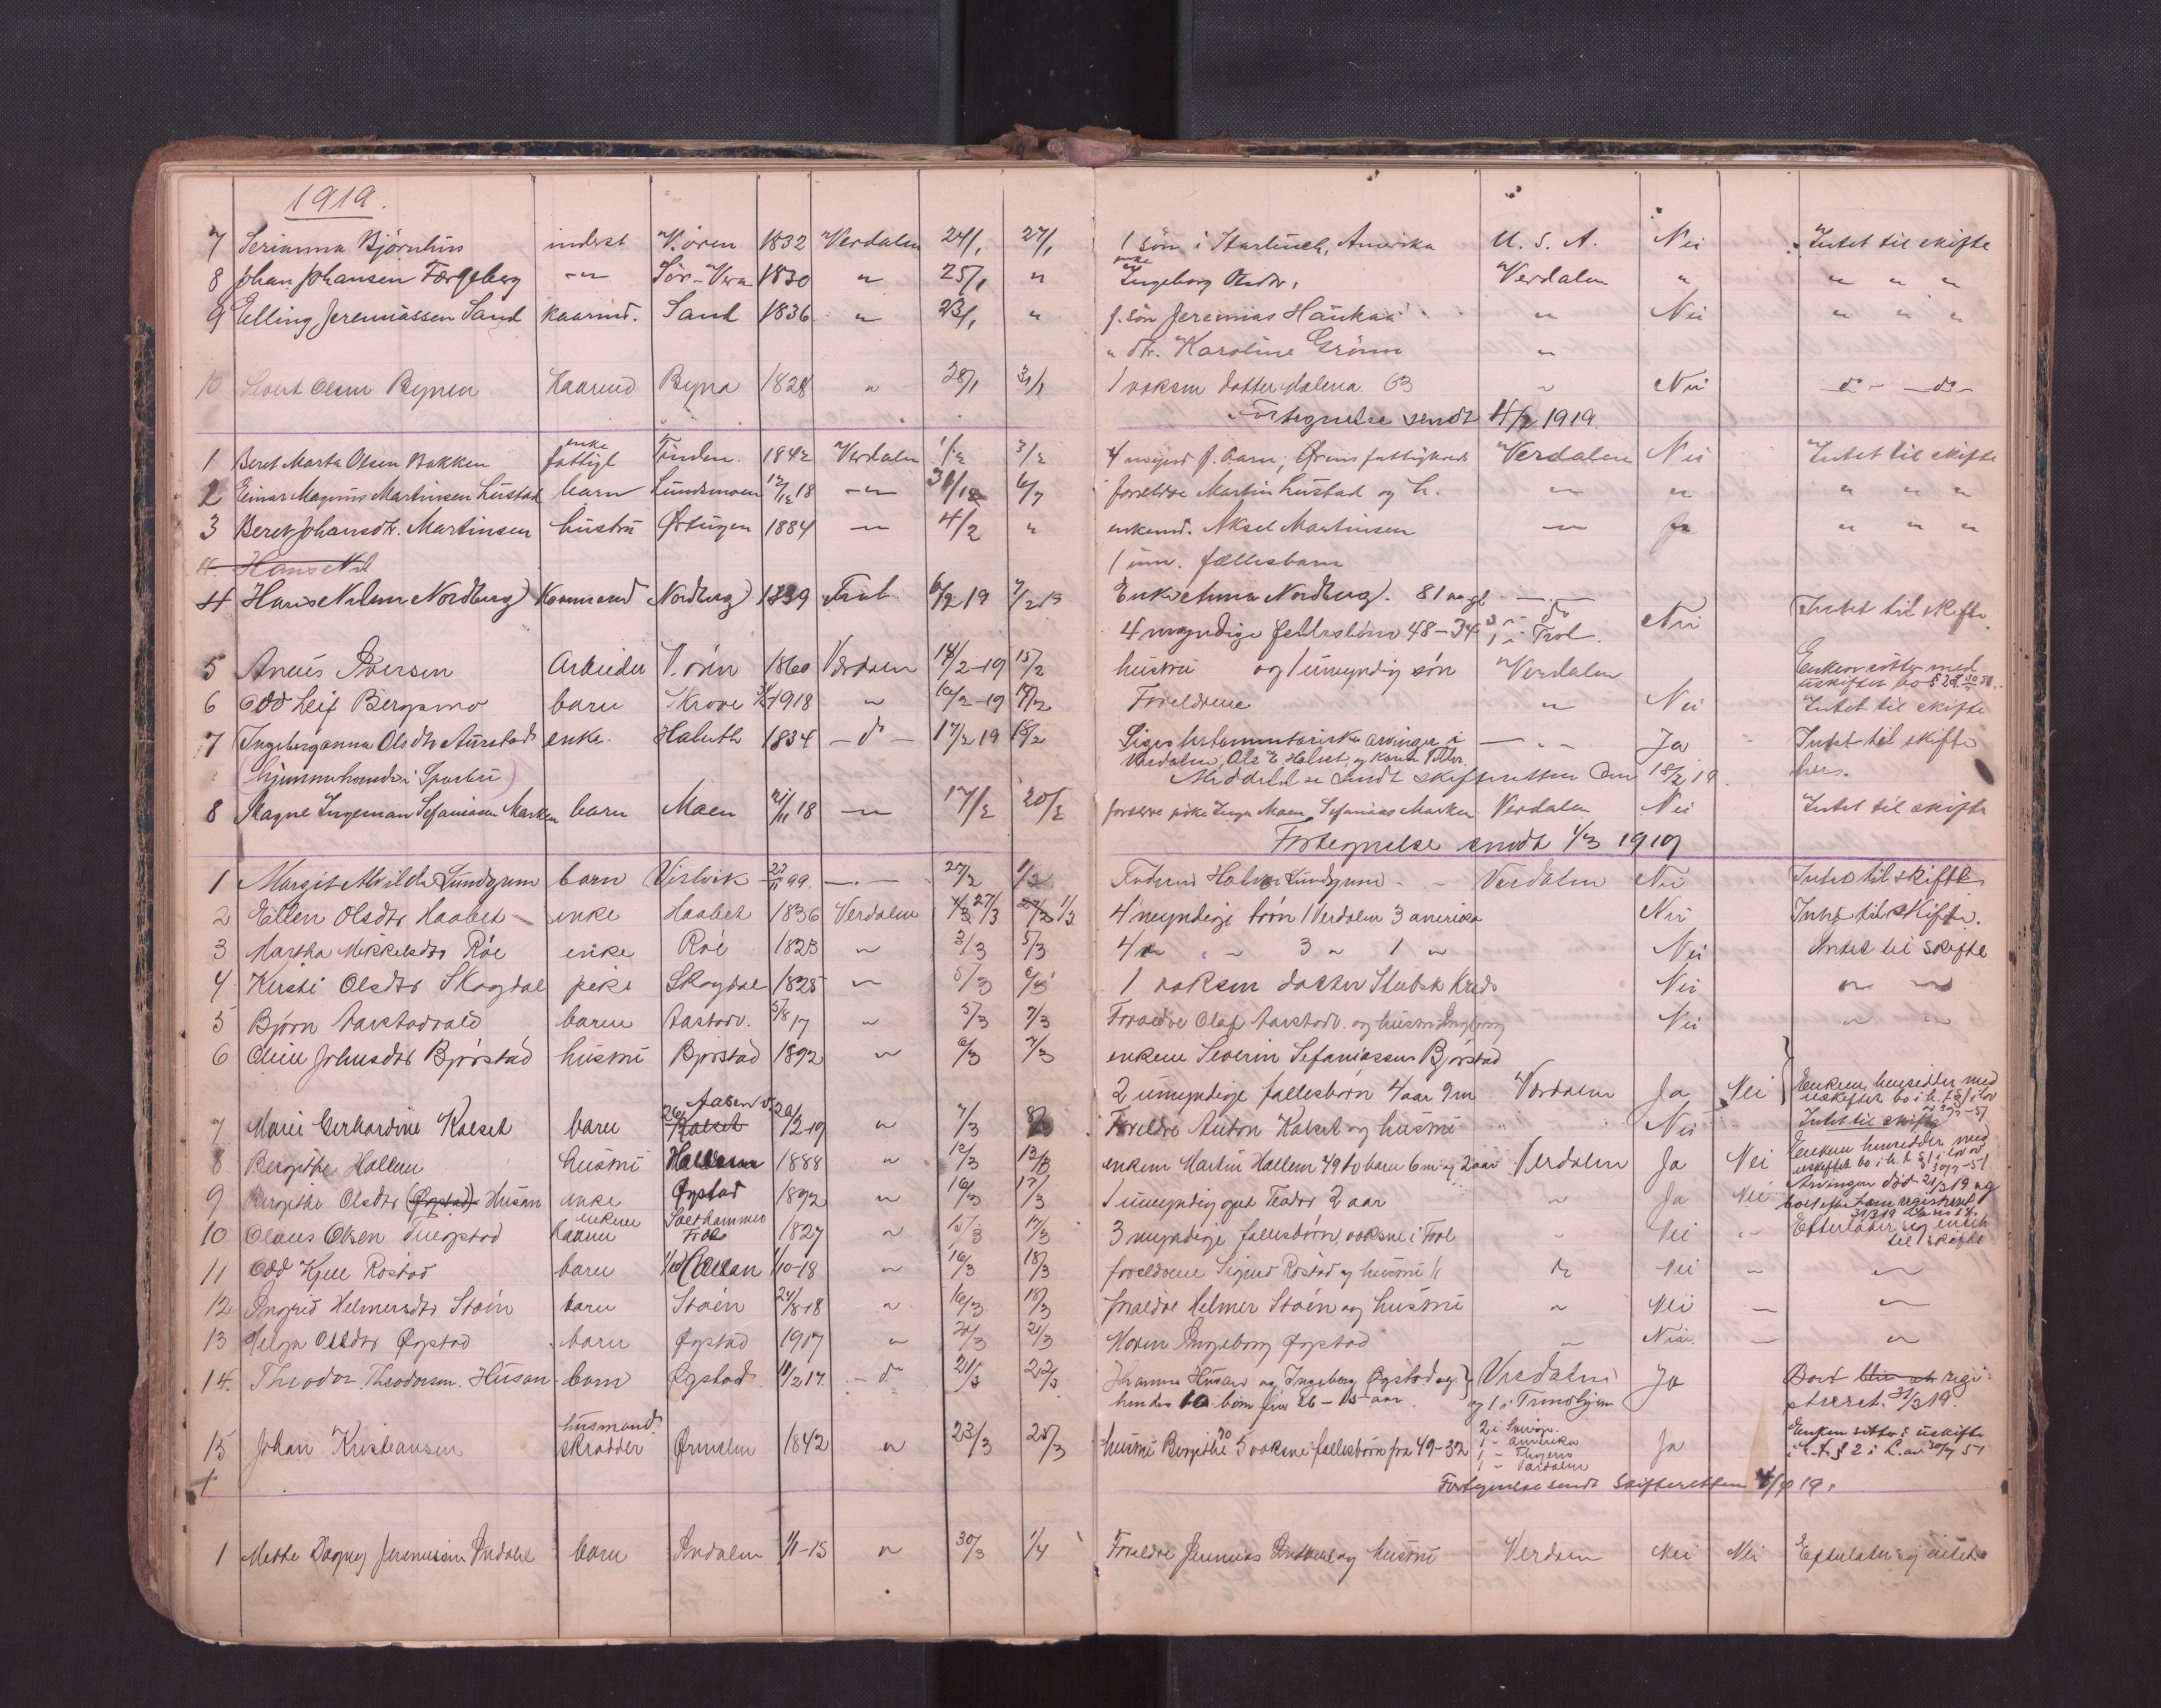 1919.
7 Serianna Bjørnhus inderst V.ören 1832 Verdalen 24/1 27/1 1 sön i Amerika U.S.A. Nei Intet til skifte
8 Johan Johansen Færgeberg -"- Sör-Vera 1830 " 25/1 " enke Ingeborg Olsdtr. Verdalen " " " "
9 Elling Jeremiassen Sand kaarmd. Sand 1836 " 23/1 " f. sön Jeremias Haukaa " Nei " " "
" dtr. Karoline Grönn "
10 Sivert Olsen Bynen Kaarmd Byna 1828 " 28/1 31/1 1 voksen datter Malena 63 " Nei -do- -do-
Fortegnelse sendt 4/2 1919.
1 Beret Marta Olsen Bakken enke fattigl Tinden. 1842 Verdalen 1/2 3/2 4 mynd f. barn, Verdalen Nei Intet til skifte
2 Einar Magnus Martinsen Lustad barn Lundsmoen 12/12 18 -"- 31/12 6/7 foreldre Martin Lustad og h. " " " " "
3 Beret Johansdtr. Martinsen hustru Örtugen 1884 -"- 4/2 " enkemd. Aksel Martinsen -"- Ja " " "
4. Hans Nil 1 um. fællesbarn
4 Hans Nilsen Nordberg Kaarmand Nordberg 1839 Frol 6/2 19 7/2 19 Enke Anna Nordberg. 81 aar gl. -"- Nei Intet til skifte
4 myndige fellesbörn 48-34 3 i do 1 i Frol.
5 Aneus Iversen Arbeider V.ören 1860 Verdalen 14/2-19 15/2 hustru og 1 umyndig sön Verdalen Enken sitter med uskiftet bo
6 Odd Leif Bergsmo barn Skrove 1918 " 16/2-19 18/2 Foreldrene " Nei Intet til skifte
7 Ingeborganna Olsdtr Aurstad enke. Halseth 1834 -do- 17/2 19 18/2 Siges testamentariske arvinger i -"- Ja Intet til skifte
(hjemmehörende i Sparbu) Verdalen, Ole E. Halset og her.
Meddelelse sendt skifteretten den 18/2 19.
8 Magne Ingeman Sefaniasen Marken barn Moen 21/11 18 -"- 17/2 20/2 forældre pike Inga Moen, Sefanias Marken Verdalen Nei Intet til skifte
Fortegnelse sendt 1/3 1919
1 Margit Alvilde Lundgren barn Vislvik 22/11 99. -"- 27/2 1/2 Faderen Halvor Lundgren - - Verdalen Nei Intet til skifte
2 Ellen Olsdtr Haabet enke Haabet 1836 Verdalen 27/3 1/3 4 myndige börn 1 Verdalen 3 amerika Nei Intet til skifte.
3 Martha Mikkelsdtr Röe enke Röe 1823 " 3/3 5/3 4 " " " 3 " 1 " Nei Intet til skifte
4 Kirsti Olsdtr Skogdal pike Skogdal 1828 " 5/3 6/3 1 voksen datter Nei " "
5 Björn Aarstadvald barn Aastadv. 5/8 17 " 5/3 7/3 Foreldre Olaf Aarstadv. og hustru Ingeborg Nei " "
6 Oline Johnsdtr Björstad hustru Björstad 1892 " 6/3 7/3 enkem Severin Sefaniassen Björstad
2 umyndige fællesbörn 4 aar 9 m Verdalen Ja Nei Enkem. hensidder med uskiftet bo i h.t. § 1 i lov av 30/7-51
7 Marie Gerhardine Kalset barn Kalset 20/2-19 " 7/3 8/3 Foreldre Anton Kalset og hustru " Nei Intet til skifte
8 Bergithe Hallem hustru Hallem 1888 " 12/3 13/3 enkem Martin Hallem 49 to barn 6 m og 2 aar Verdalen Ja Nei Enkem hensidder med uskiftet bo i h.t. § 1 i lov av 30/7-51
9 Bergithe Olsdtr (Øgstad) Husan enke Øgstad 1892 " 16/3 17/3 1 umyndig gut Teodor 2 aar " Ja Nei Arvingen död 21/3 19 og boet efter ham registreret 31/3 19
10 Olaus Olsen Tuegstad enkem kaarm Solhammer Frol 1827 " 15/3 17/3 3 myndige fællesbörn, voksne i Frol " Nei " Efterlater sig intet til skifte
11 Odd Kjell Rostad barn Hallan 1/10-18 " 16/3 18/3 foreldrene Sigurd Rostad og hustru do Nei - "
12 Ingrid Helmersdtr Stoén barn Stoén 24/8-18 " 16/3 18/3 foreldre Helmer Stoén og hustru " Nei - "
13 Helga Olsdtr Øgstad barn Øgstad 1907 " 20/3 21/3 Moren Ingeborg Øgstad " Nei. - "
14. Theodor Theodorsen Husan barn Øgstad 11/2 17. -do 21/3 22/3 Johannes Husan og Ingeborg Øgstad og Verdalen Ja Boet blir at regi-
hendes 10 börn fra 26-15 aar. og 1 i Trondhjem streret. 31/3 19.
15 Johan Kristiansen husmand. skrædder Ørmelen 1842 " 23/3 25/3 hustru Bergithe 70 5 voksne fællesbörn fra 49-32 2 i Sverige. 1 - Amerika 1 - Thjems 1 - Verdalen Ja Enken sitter i uskifte i h.t. § 2 i L. av 30/7 51
1 Fortegnelse sendt skifteretten 4/4 19.
1 Mette Dagny Jeremiasen Indahl barn Indalen 1/1-15 " 30/3 1/4 Foreldre Jeremias Indahl og hustru Verdalen Nei Nei Efterlater sig intet